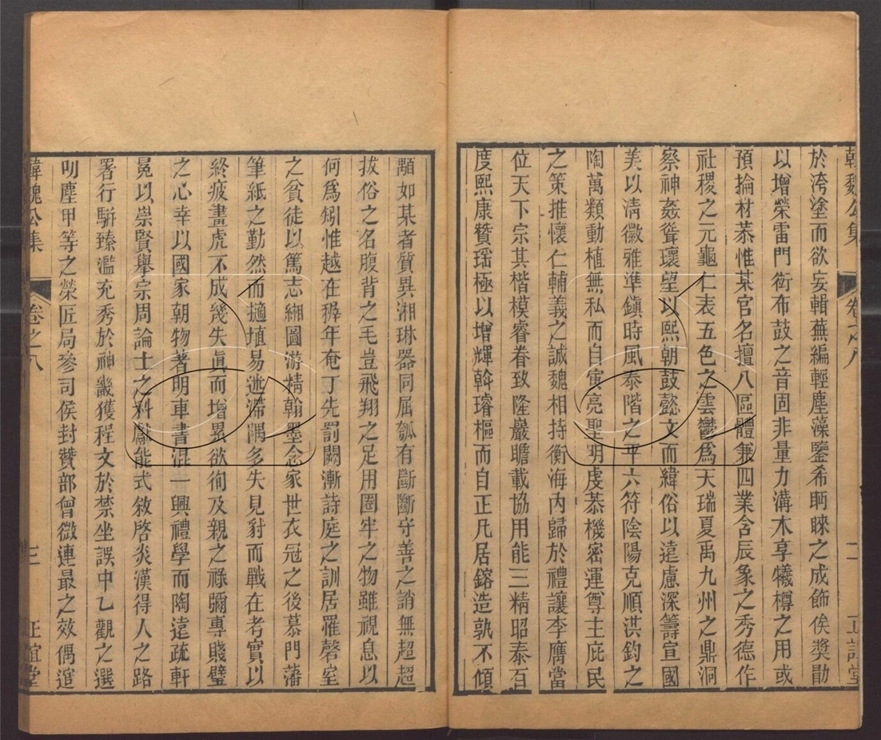 韓魏公集 卷之八 二 正誼堂
於洿塗而欲妄輯蕪編輕塵藻鑒希眄睞之成飾俟獎勖
以增榮雷門衒布鼓之音固非量力溝木享犧樽之用或
預掄材恭惟某官名擅八區體兼四業含辰象之秀德作
社稷之元龜仁表五色之雲鬱爲天瑞夏禹九州之鼎洞
察神姦聳瓌望以熙朝鼓懿文而緯俗以遠慮深籌宣國
美以清徽雅準鎭時風泰階之平六符陰陽克順洪鈞之
陶萬類動植無私而自寅亮聖明虔恭機密運尊主庇民
之策推懷仁輔義之誠魏相持衡海內歸於禮讓李膺當
位天下宗其楷模睿眷致隆巖瞻載協用能三精昭泰百
度熙康贊瑶極以增輝斡璿樞而自正凡居鎔造孰不傾
顒如某者質異湘琳器同屈瓠有斷斷守善之誚無超超
拔俗之名腹背之毛豈飛翔之足用圈牢之物雖視息以
何爲矧惟越在穉年奄丁先罰闕漸詩庭之訓居罹磬室
之貧徒以篤志緗圖游精翰墨念家世衣冠之後慕門藩
筆紙之勤然而擿埴易迷滯隅多失見豺而戰在考實以
終疲畫虎不成幾失眞而增累欲徇及親之祿彌專賤璧
之心幸以國家朝物著明車書混一興禮學而陶遠疏軒
冕以崇賢舉宗周論士之科獻能式敘啓炎漢得人之路
署行駢臻濫充秀於神畿獲程文於禁坐誤中乙觀之選
叨塵甲等之榮匠局參司侯封贊部曾微連最之效偶逭
韓魏公集 卷之八 三 正誼堂